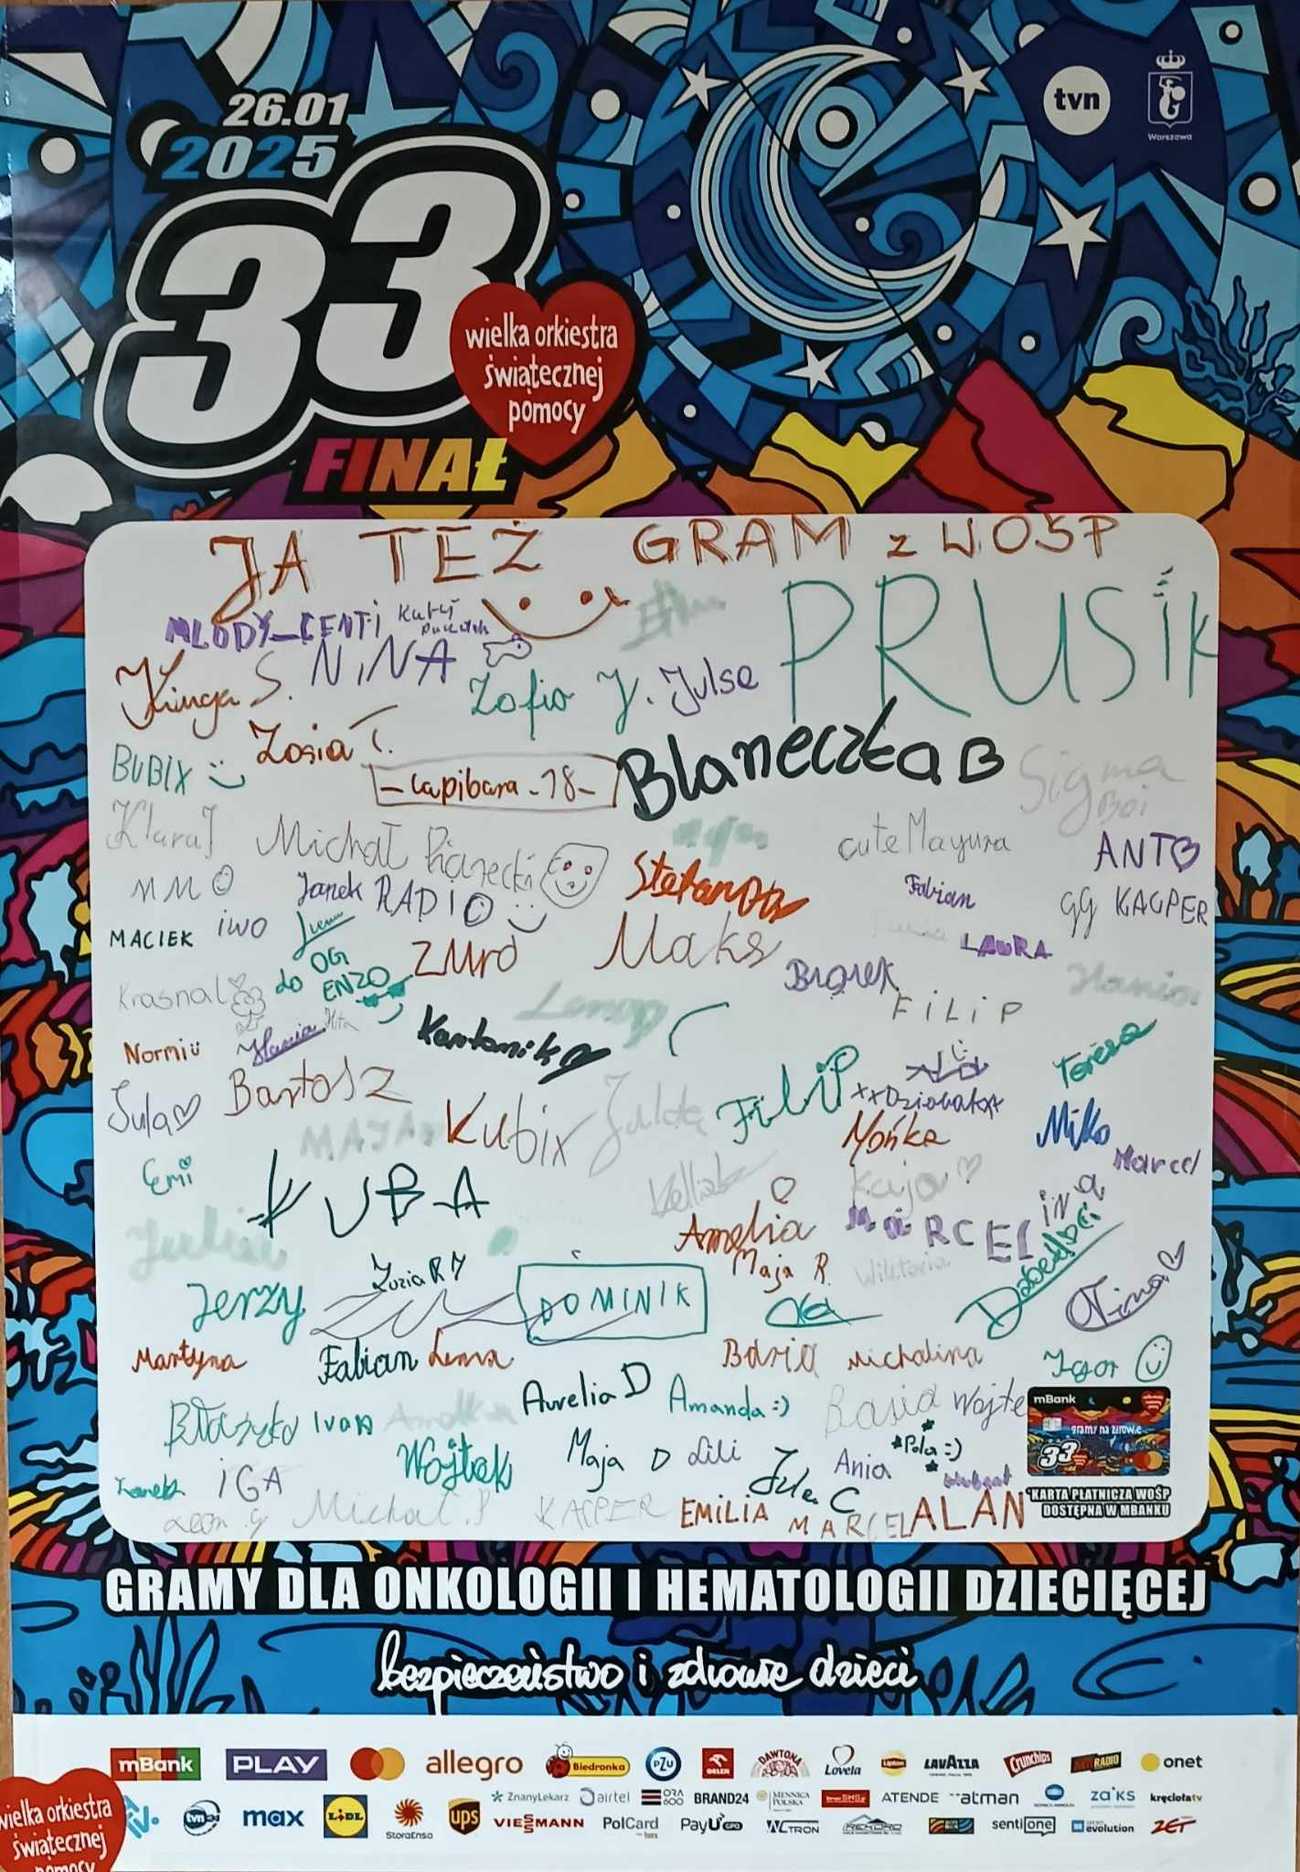 26.01
2025
33
FINAŁ
wielka orkiestra
świątecznej
pomocy
tvn
Warszawa
JA TEŻ GRAM z WOŚP
MLODY_CENTI
PRUSIK
Kinga S. NINA Zofia J. Julse
BUBIX Zosia T. -capibara-18- Blaneczka B Sigma
Boi
Klara J Michał cute Mayura ANTO
NM Janek RADIO Stefania Fabian gg KACPER
MACIEK iwo
ZMRO Maks LAURA
do OG
ENZO
Krasnal Bronek Hania
FiLiP
Normi Hania Teresa
Jula Bartosz Kubix Julka FiLiP Mońka Milko
MAJA Marcel
Emi KUBA Kaja
Julia Amelia MARCELINA
Zuzia RM Maja R. Wiktoria
Jerzy DOMINIK Nina
Martyna Fabian Lena Basia Michalina Igor
Aurelia D Amanda :) Basia Wojte
Błażej Iwan
Wojtek Maja D Lili Ania *Pola :)
Janek IGA Julia C
Leon g Michał P KACPER EMILIA MARCEL ALAN
mBank
gramy na zdrowie
33
KARTA PŁATNICZA WOŚP
DOSTĘPNA W MBANKU
GRAMY DLA ONKOLOGII I HEMATOLOGII DZIECIĘCEJ
bezpieczeństwo i zdrowie dzieci
mBank PLAY allegro Biedronka PZU ORLEN DAWTONA Lovela Lipton LAVAZZA Crunchips RADIO onet
ZnanyLekarz airtel ORA 600 BRAND24 MENNICA POLSKA ATENDE atman ZAiKS kręciołatv
tvn24 max LIDL StoraEnso ups VIESSMANN PolCard PayU GPO WCTRON sentione evolution ZET
wielka orkiestra
świątecznej
pomocy